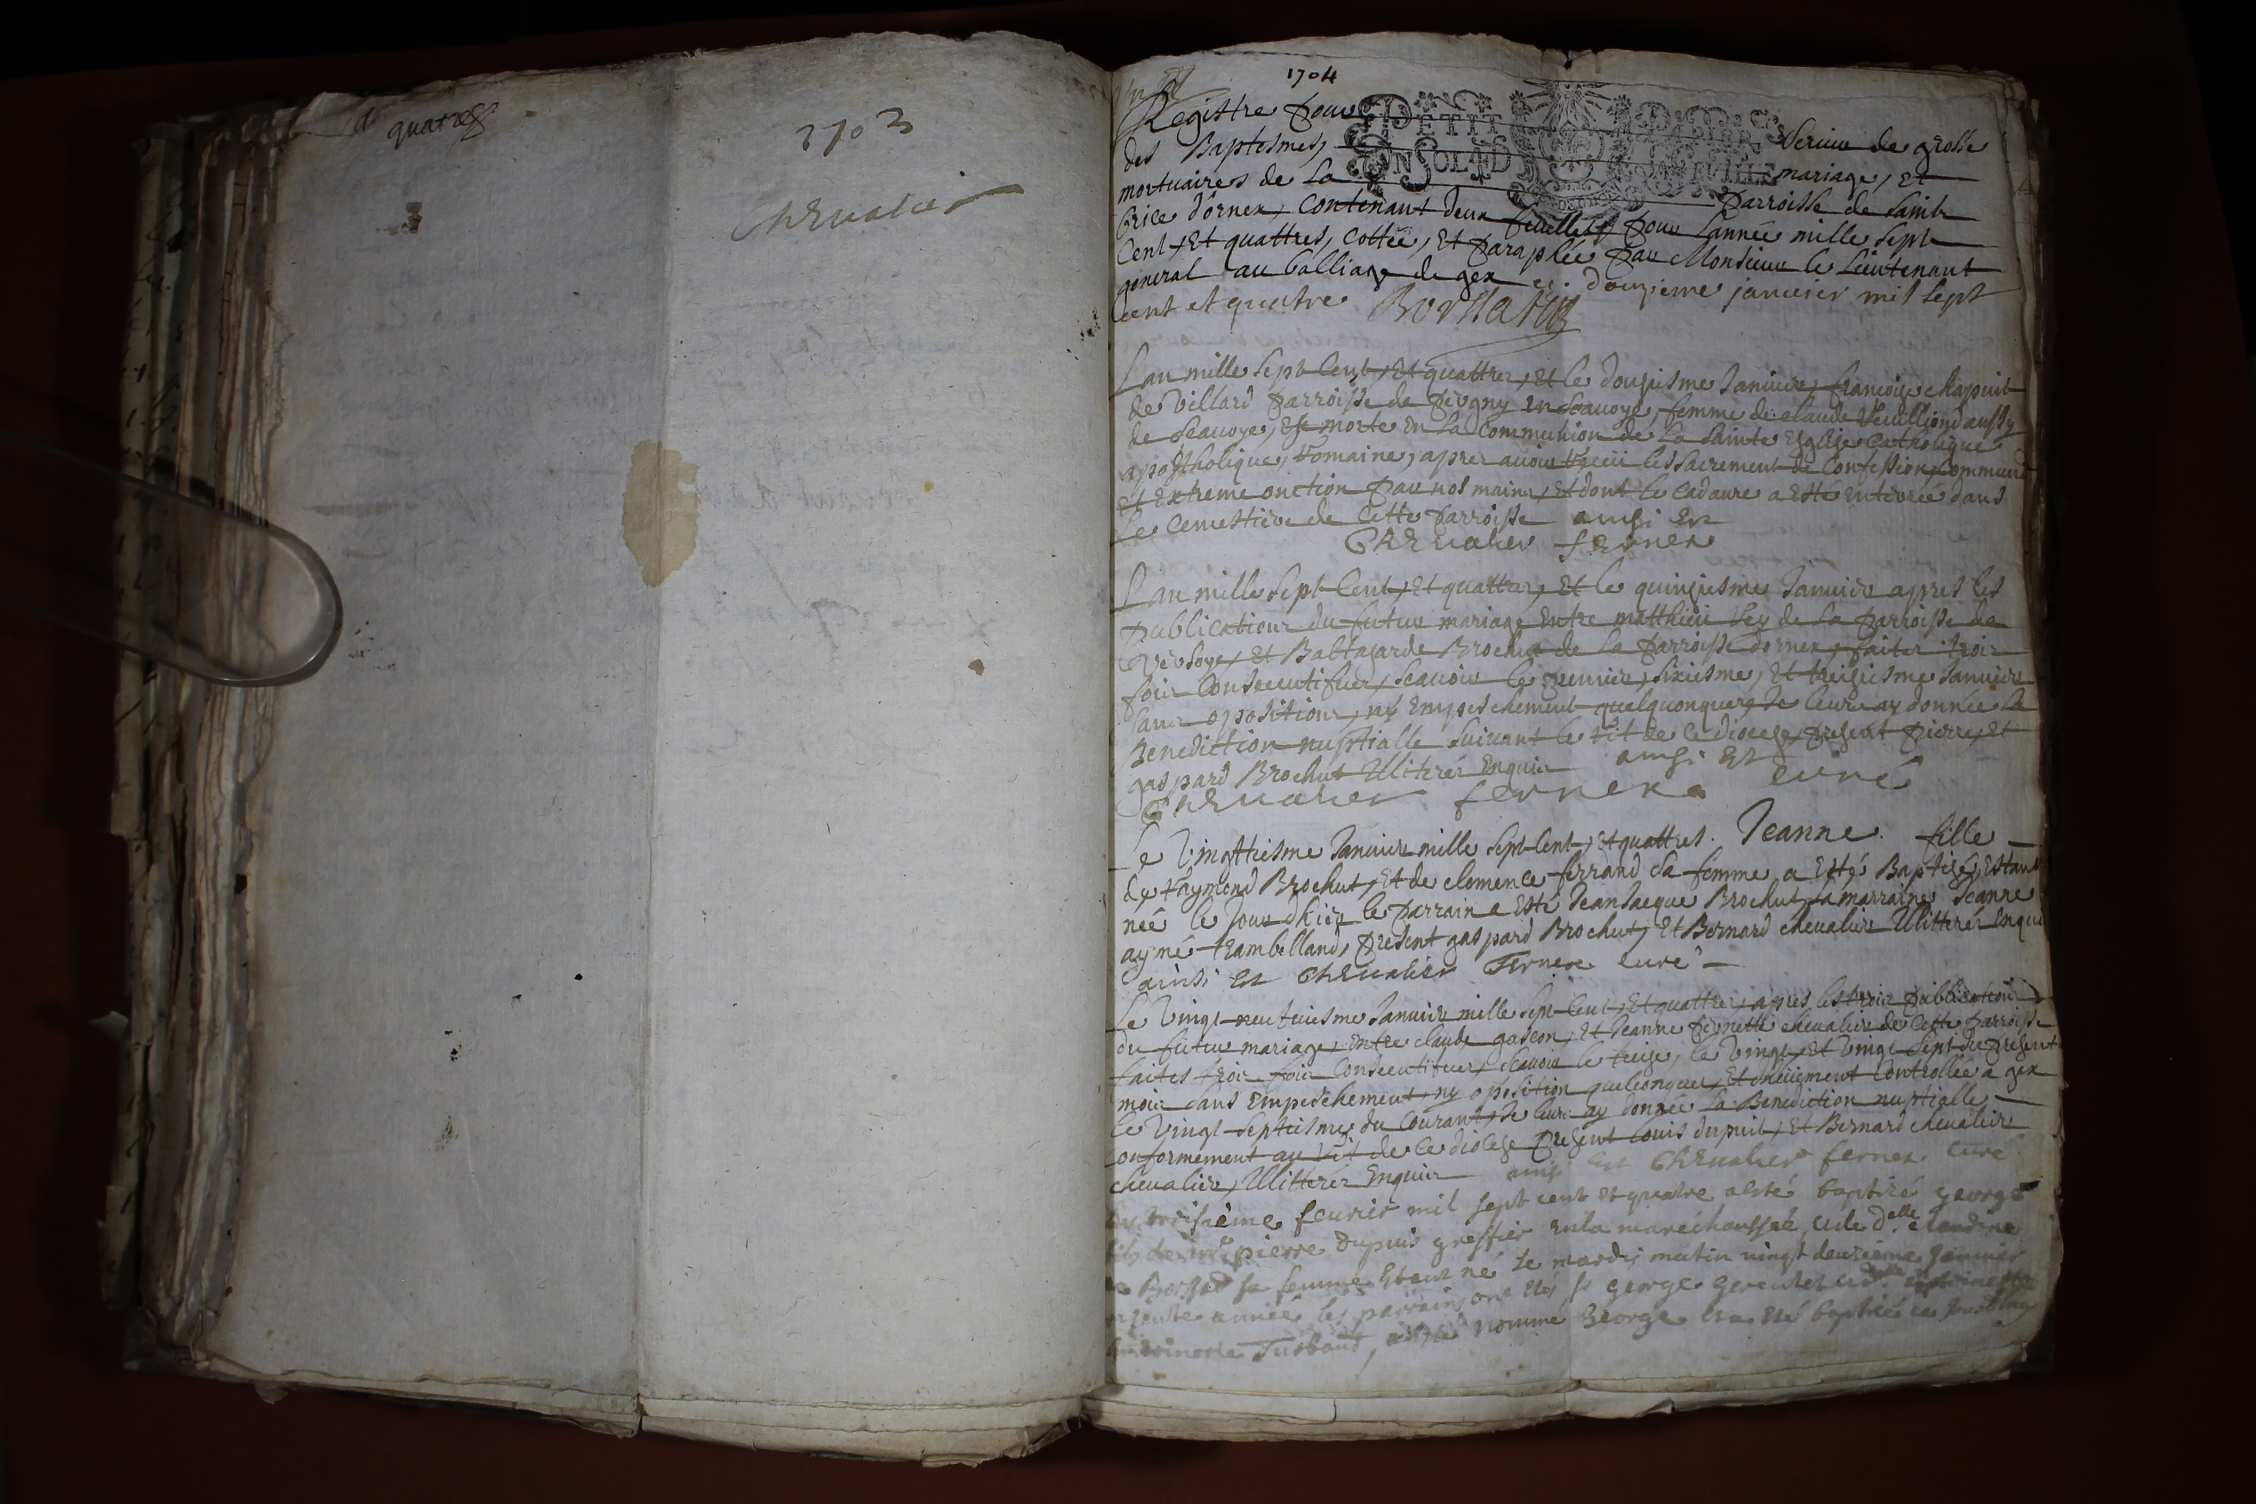 quatre
1703
Chevalier
1704
Registre pour servir de grosse
PETIT PAPIER
EN SOL 4D LA FEUILLE
des Baptesmes, mariage, et
mortuaires de la parroisse de saint
Brice d'ornex, contenant deux feuillets pour l'année mille sept
cent, et quattres, cottée, et paraphée par Monsieur le Lieutenant
general au balliage de gex douzieme janvier mil sept
cent et quatre
L'an mille sept cent, et quattres, et le douziesme Janvier, francoise chapuit
de Villard parroisse de en Scavoye, femme de claude aussy
de Scavoye, est morte en la Communion de la sainte Esglise Catholique
apostholique, Romaine, apres avoir receü les sacrement de Confession, Communion
et Extreme onction par nos mains, et dont le cadavre a esté enterrée dans
le cemestiere de cette parroisse ainsi est
Chevalier fernex
L'an mille sept cent, et quattres, et le quinziesme Janvier apres les
publications du futur mariage entre matthieu Rey de la parroisse de
Versoye, et Baltazarde Brochut de la parroisse d'ornex, faites trois
fois consecutifues, scavoir le premier, sixiesme, et treiziesme Janvier
sans oposition, ny Empeschement quelquonques, Je leurs ay donnée la
Benediction nuptialle suivant le rit de ce diocese, present pierre, et
gaspard Brochut Illiterés Enquis ainsi est
Chevalier fernex curé
Le Vingttiesme Janvier mille sept cent, et quattres. Jeanne fille
de Raymond Brochut, et de clemence ferrand sa femme, a Esté Baptisé, Estant
née le Jour d'hier le parrain a esté Jean Jacque Brochut, la marraine Jeanne
aymé trambelland, present gaspard Brochut, et Bernard chevalier Illitterés Enquis
ainsi est Chevalier Fernex curé
Le Vingt neufuiesme Janvier mille sept cent, et quattres, apres les trois publication
du futur mariage, entre claude gascon, et Jeanne pernette chevalier de cette parroisse
faites trois fois consecutifues, scavoir le treize, le vingt, et vingt sept du present
mois sans Empeschement, ny oposition quelconques, et controllée a gex
le Vingt septiesme du courant, Je leurs ay donnée la Benediction nuptialle
conformement au rit de ce diocese present Louis dupuit, et Bernard chevalier
chevalier, Illitterés Enquis ainsi est Chevalier fernex curé
troisieme fevrier mil sept cent et quatre a esté baptizé george
fils de me pierre Dupuis greffier en la maréchaussée et de delle claudine
sa femme Estant né le mardy matin vingt deuzieme Janvier
année les parrains ont esté sr george
a esté nommé George et a esté baptizé